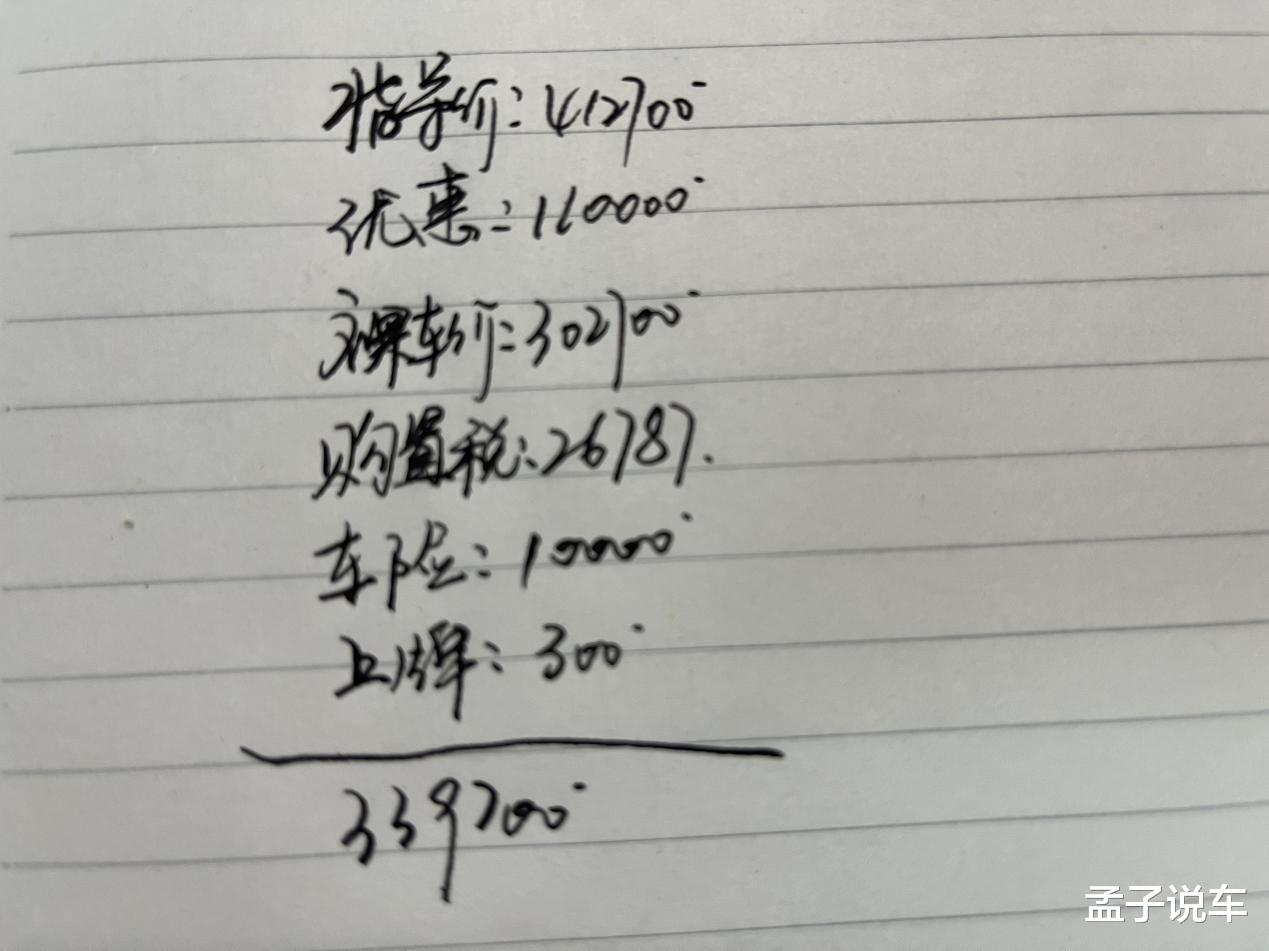 指导价：412700
优惠：110000
裸车价：302700
购置税：26787.
车险：10000
上牌：300
339700
孟子说车